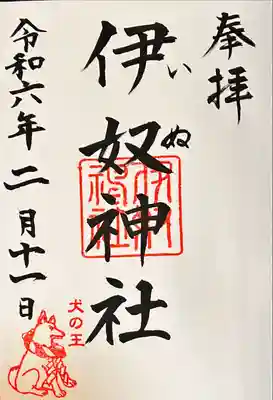 奉拝
伊奴神社
いぬ
令和六年二月十一日
犬の王